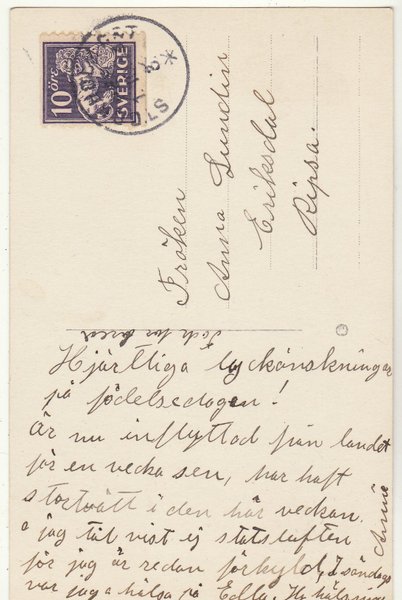 10 ÖRE
SVERIGE
STJÄRNHOLS
Fröken
Anna Lundin
Eriksdal
Ripsa.
Tack för bred
Hjärtliga lyckönskningar
på födelsedagen!
Är nu inflyttad från landet
för en vecka sen, har haft
storvätt i den här veckan.
jag tål vist ej stadsluften
för jag är redan förkyld, I söndags
var jag o hälsa på Edla. Hj. hälsning